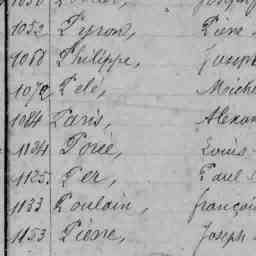 1052 Pyron, Piere
1068 Philippe, Joseph
1072 Pelé, Miche
1084 Paris, Alexan
1124 Poree, Louis
1125 Per, Paul
1133 Poulain, françoi
1153 Piene, Joseph